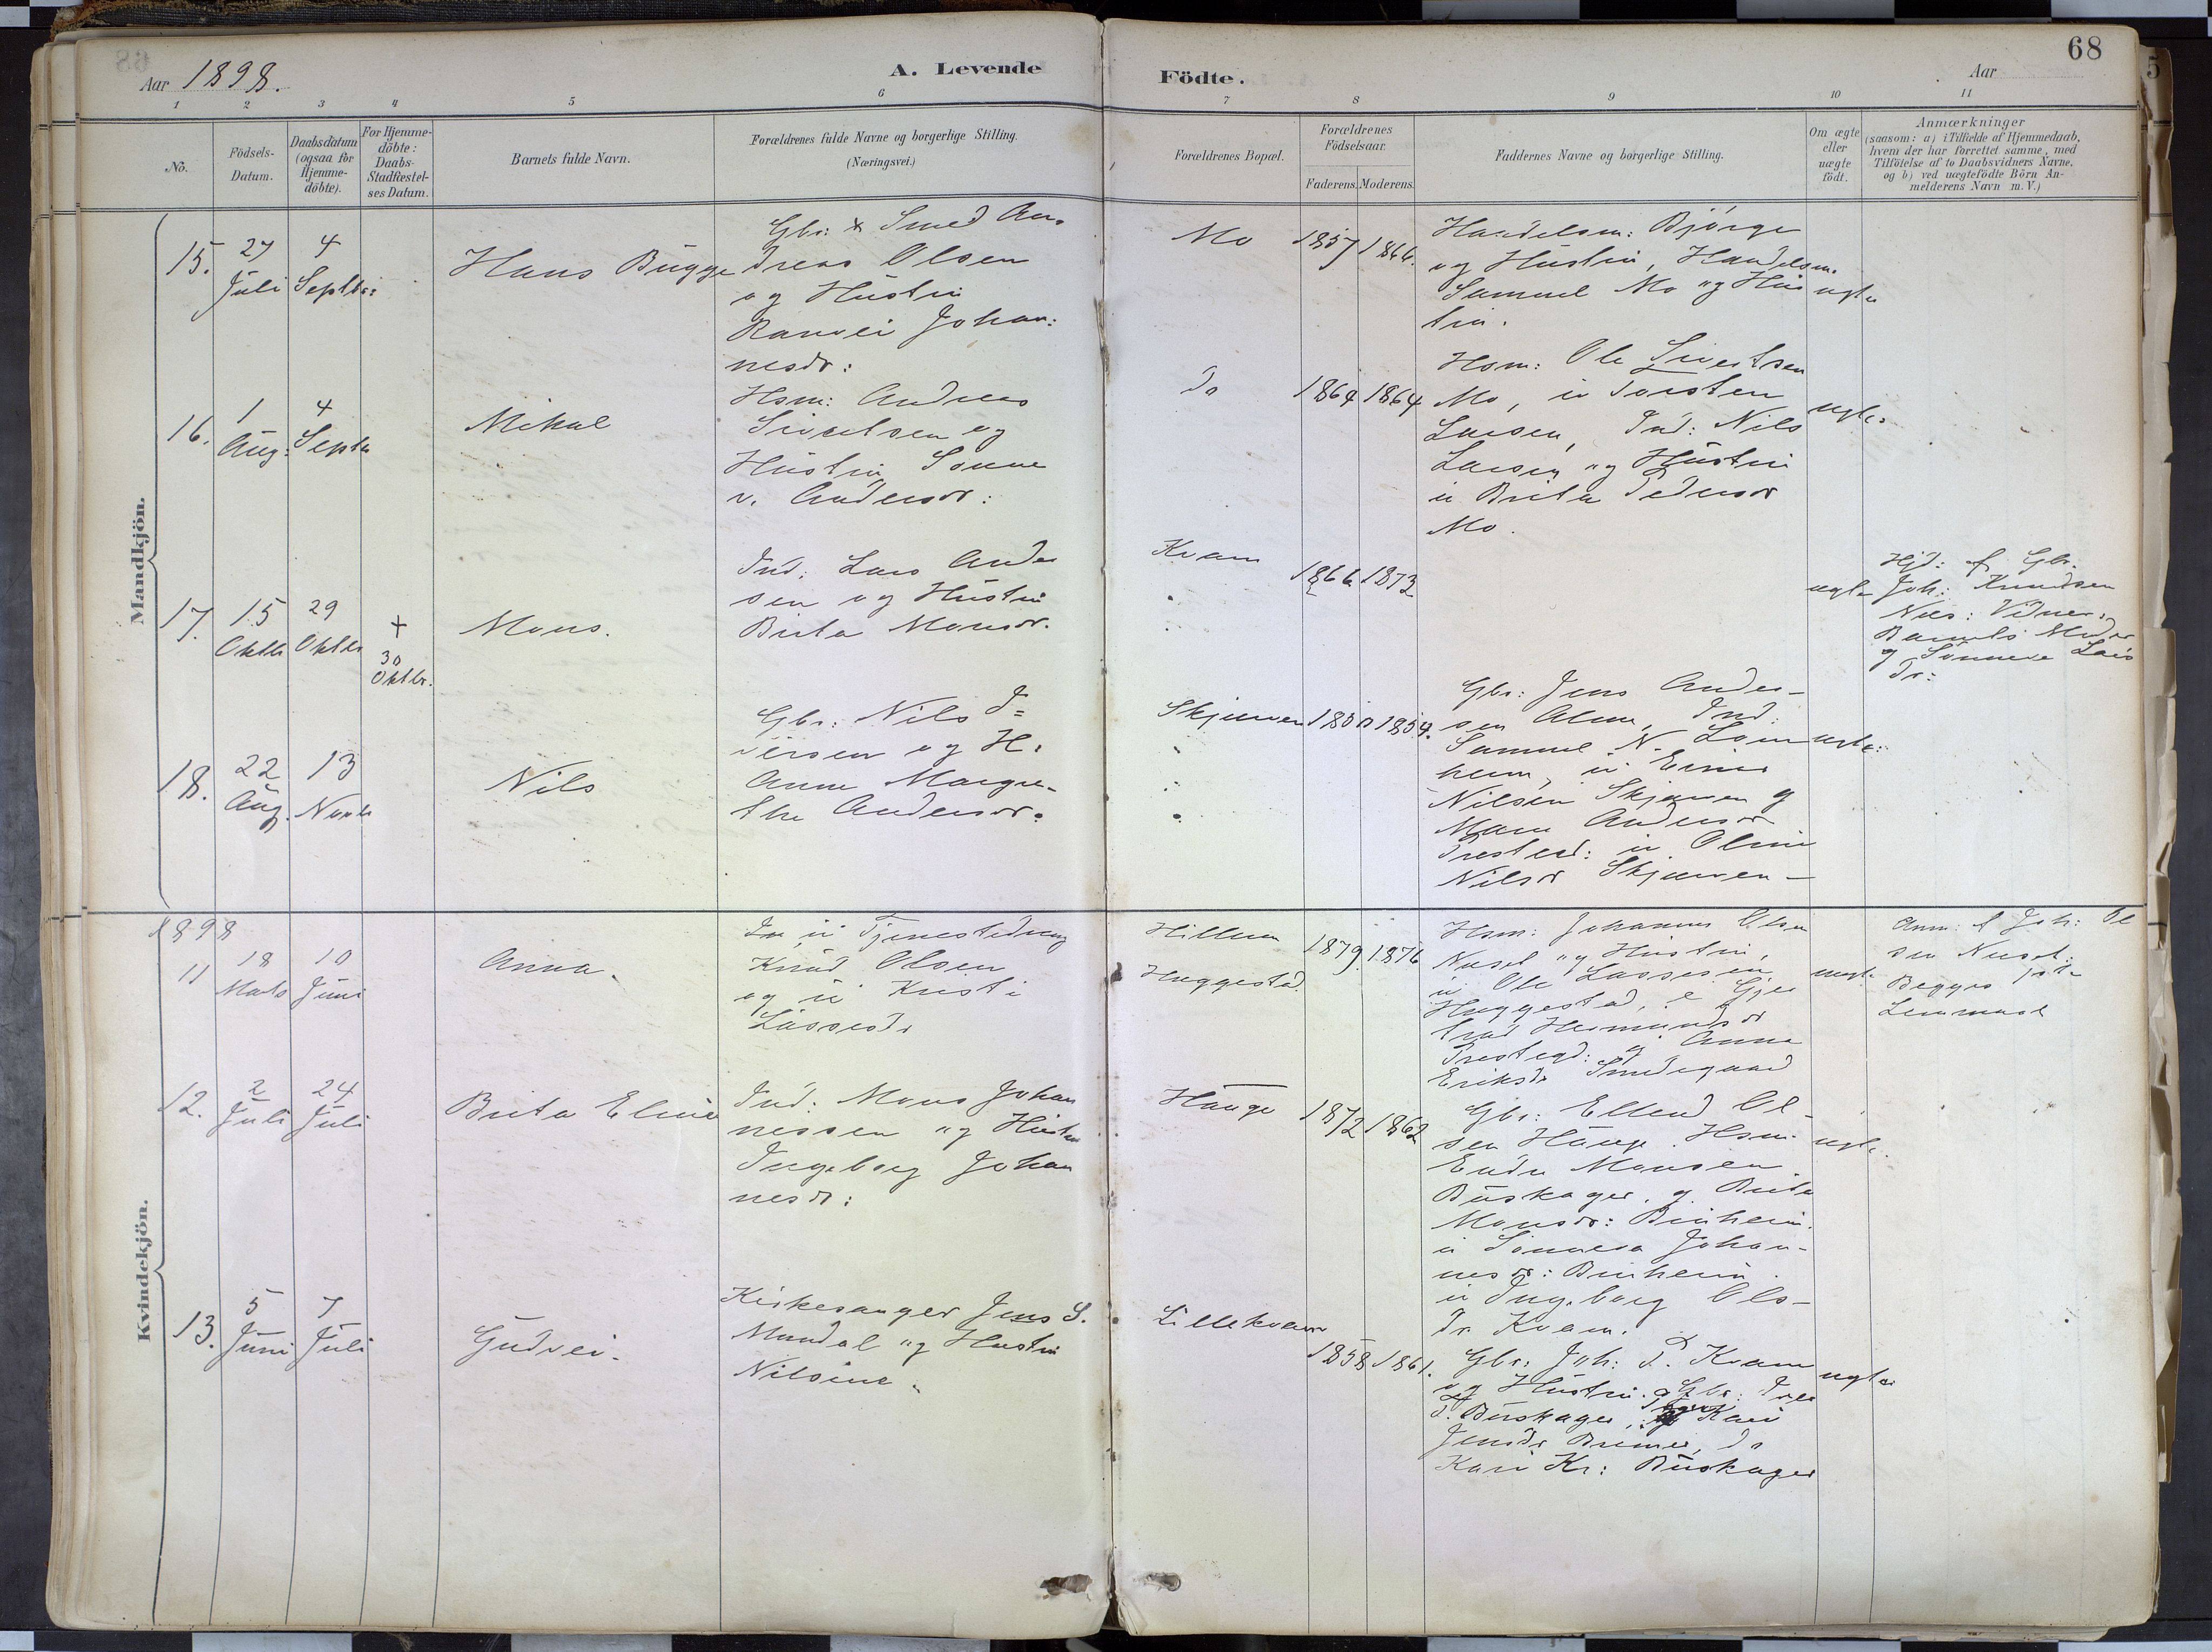 68
Aar 1898.
A. Levende Födte.
Aar
1 2 3 4 5 6 7 8 9 10 11
No.
Födsels-Datum.
Daabsdatum (ogsaa for Hjemme-döbte).
For Hjemme-döbte: Daabs-Stadfæstel-ses Datum.
Barnets fulde Navn.
Forældrenes fulde Navne og borgerlige Stilling.
(Næringsvei.)
Forældrenes Bopæl.
Forældrenes Födselsaar.
Faderens. Moderens.
Faddernes Navne og borgerlige Stilling.
Om ægte eller uægte födt.
Anmærkninger
(saasom: a) i Tilfælde af Hjemmedaab,
hvem der har forrettet samme, med
Tilföielse af to Daabsvidners Navne.
og b) ved uægtefödte Börn An-
melderens Navn m.V.)
Mandkjön.
15.
27 Juli
4 Septbr:
Hans Bugge
Gbr: & Smed An-
dreas Olsen
og Hustru
Ranvei Johan:
nesdr:
Mo
1857 1866.
Handelsm: Bjórge
og Hustru, Handelsm.
Samuel Mo og Hus
tru.
ægte
16.
1 Aug:
4 Septb
Mikal
Hsm: Andreas
Sivertsen og
Hustru Sønne
v. Andersdr:
Do
1864 1864
Hsm: Ole Sivertsen
Mo, u Torsten
Larsen, Ind: Nils
Larsen og Hustru
u Brita Pedersdr
Mo.
ægte
17.
15 Oktb
29 Oktbr
+ 30 Oktbr.
Mons.
Ind: Lars Ander
sen og Hustru
Brita Monsdr.
Kvam
1866 1873
ægte
Hjd: af Gbr.
Joh: Knudsen
Nes: Vidner:
Barnets Moder
og Sønneve Lars
dr:
18.
22 Aug.
13 Novbr
Nils
Gbr: Nils I=
versen og H.
Anne Margre-
the Andersdr.
Skjerven
1850 1854.
Gbr: Jens Ander-
sen Alme, Ind:
Samuel N. Lom
heim, u Einar
Nilsen Skjerven og
Mari Andersdr
Presteg: u Oline
Nilsdr Skjerven -
ægte:
Kvindekjön.
1898
11
18 Marts
10 Juni
Anna.
u Tjenestedreng
Knud Olsen
og u Kristi
Lassesdr
Hillum
Huggestad.
1879. 1876
Hsm: Johannes Olsen
Neset og Hustru,
u Ole Lassesen
Huggestad, Gjer
trud Hermundsdr
Prestegd: og Anna
Eriksdr Smedegaard
uægt.
Anm: af Joh: Ol
sen Neset:
Begges 1ste
Leiermaal
12.
2 Juli
24 Juli
Brita Eline
Ind: Mons Johan
nessen og Hustru
Ingeborg Johan
nesdr:
Hauge
1872 1862
Gbr: Ellend Ol-
sen Hauge. Hsm:
Endre Monsen
Buskager, og Brita
Monsdr: Brusheim.
u Sønneva Johan-
nesdr: Brusheim.
u Ingeborg Ols-
dr Kvam.
ægte.
13.
5 Juni
7 Juli
Gudvei.
Kirkesanger Jens S.
Mundal og Hustru
Nilsine.
Lillekvam
1858 1861.
Gbr: Joh: P. Kvam
og Hustru. Gbr:
Buskager, Kari
Jensdr Bremer, do
Kari Kr: Buskager
ægte